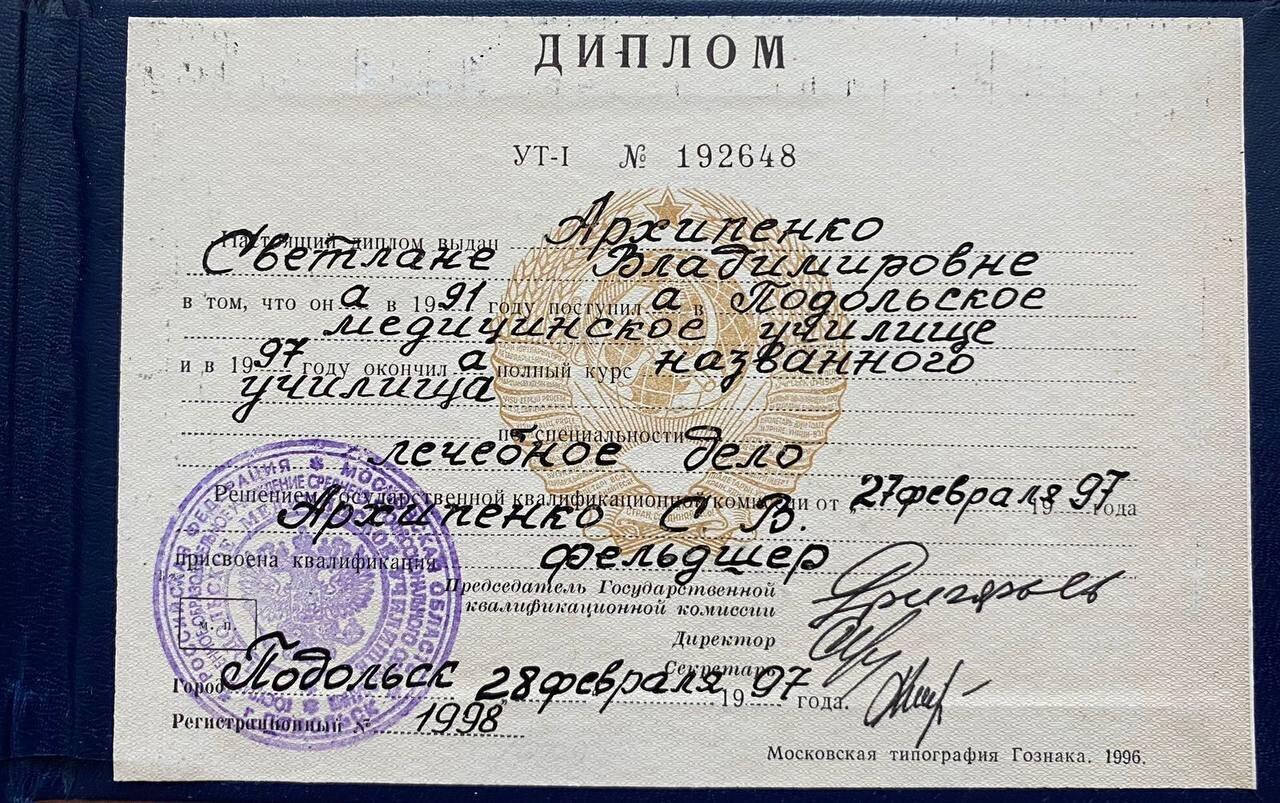 ДИПЛОМ
УТ-I № 192648
Настоящий диплом выдан Архипенко
Светлане Владимировне
в том, что она в 1991 году поступила в Подольское
медицинское училище
и в 1997 году окончила полный курс названного
училища
по специальности
лечебное дело
Решением Государственной квалификационной комиссии от 27 февраля 1997 года
Архипенко С. В.
присвоена квалификация фельдшер
Председатель Государственной
квалификационной комиссии
м. п.
Директор
Секретарь
Город Подольск 28 февраля 1997 года.
Регистрационный № 1998
Московская типография Гознака. 1996.